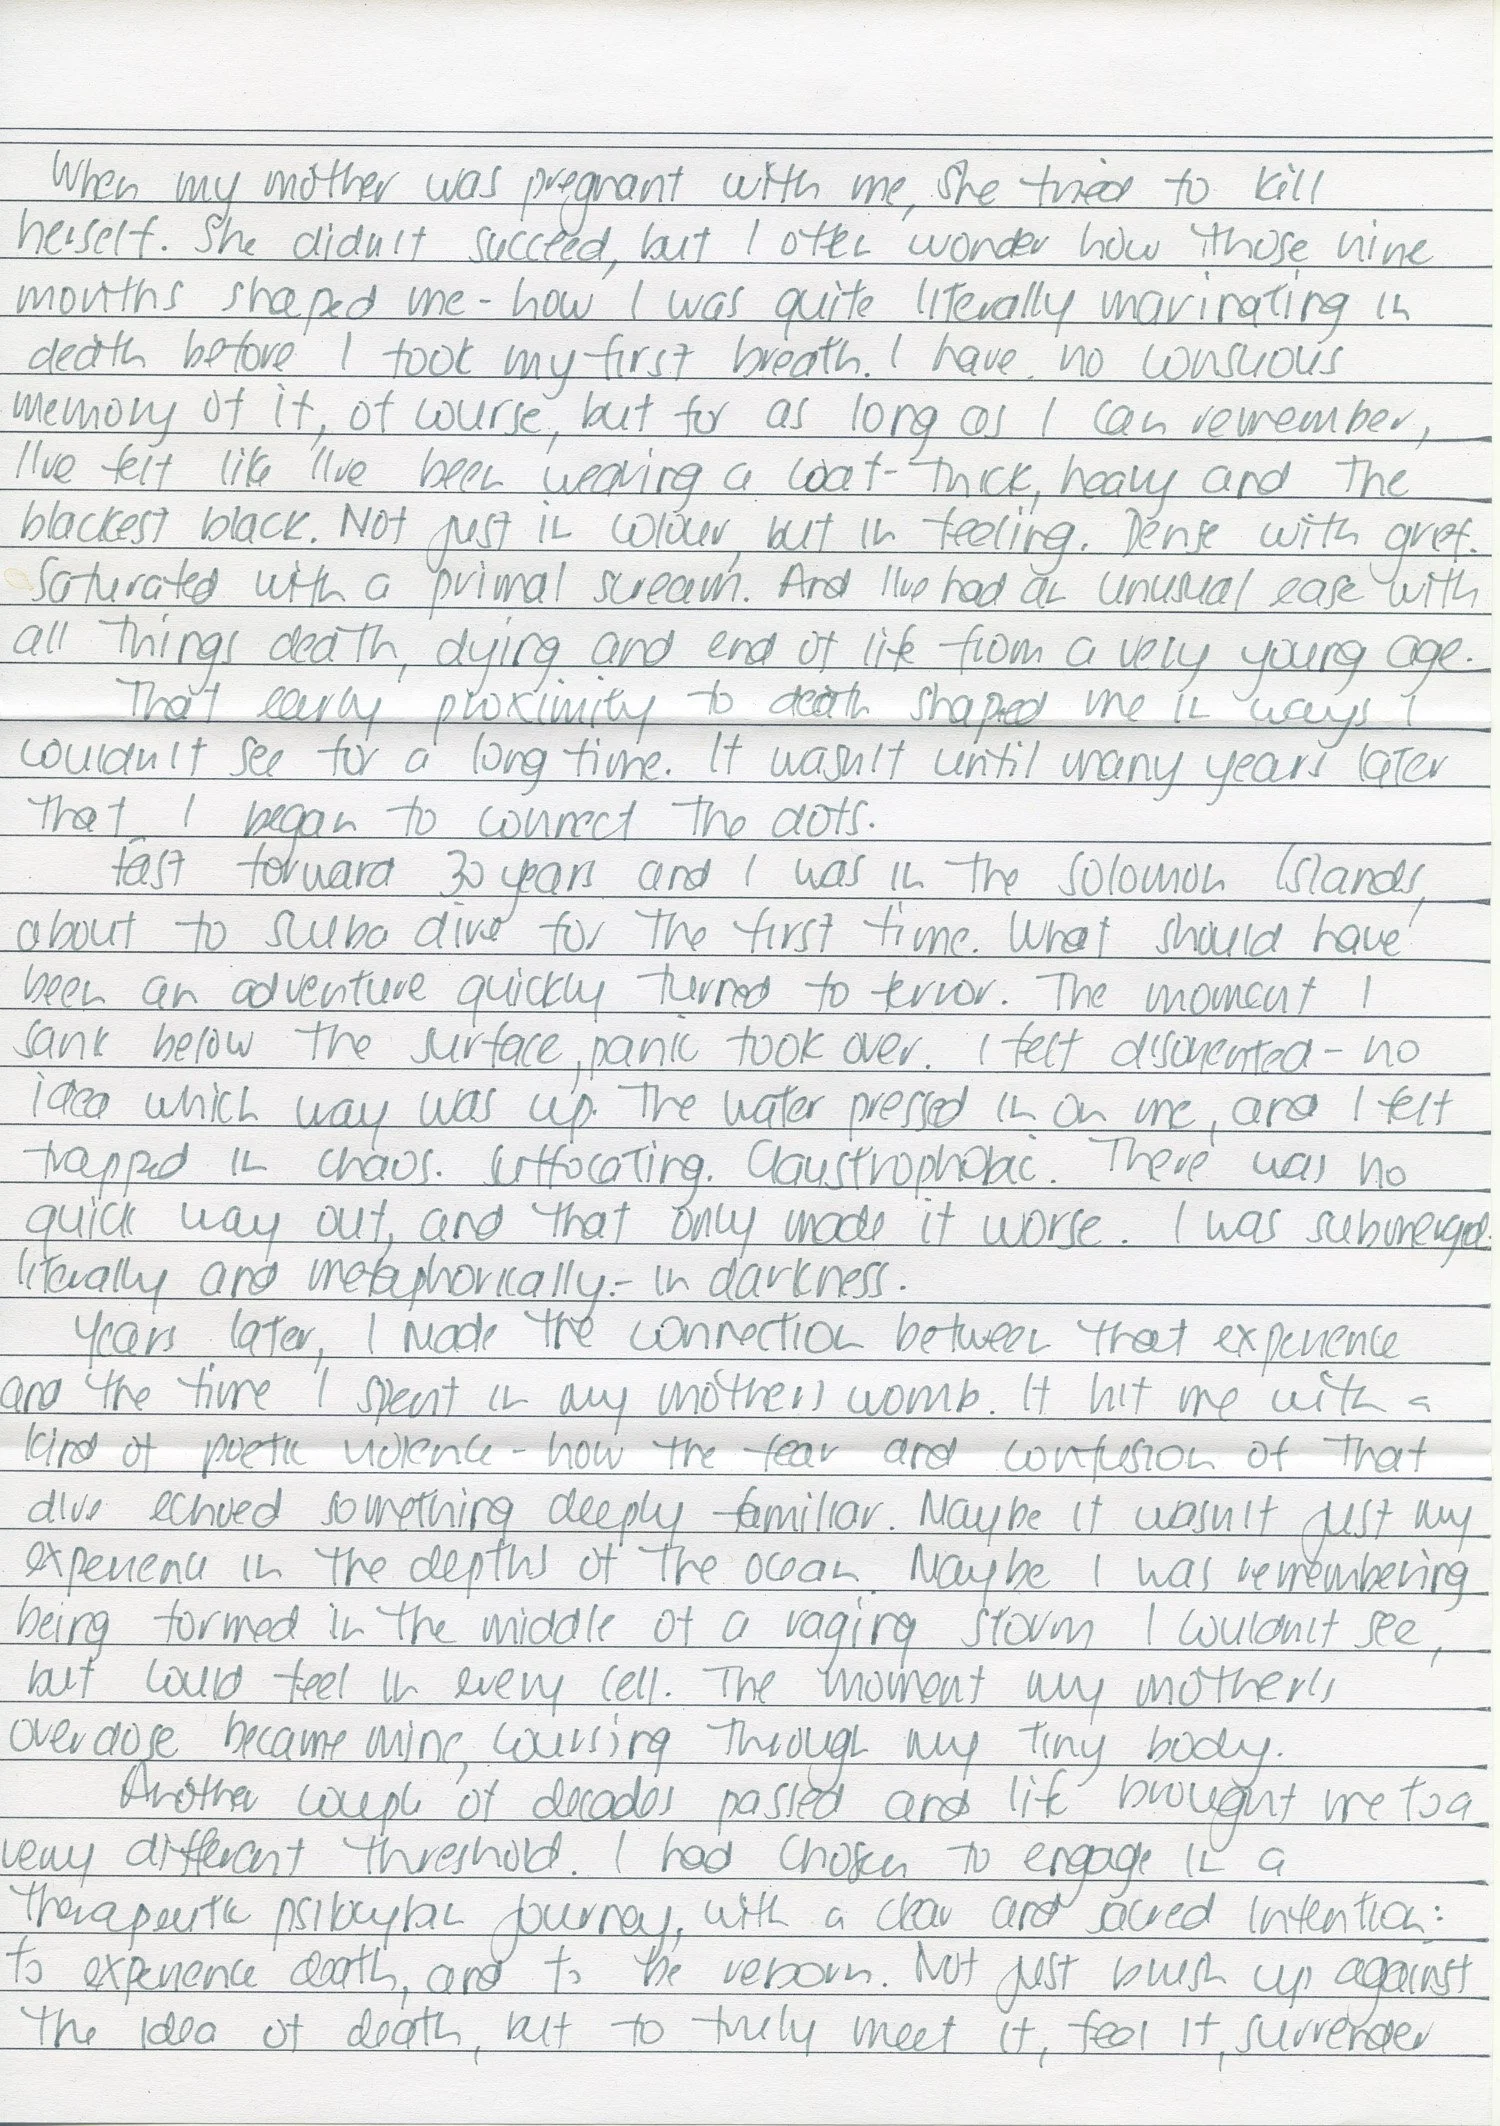 When my mother was pregnant with me, she tried to kill
herself. She didn't succeed, but I often wonder how those nine
months shaped me - how I was quite literally marinating in
death before I took my first breath. I have no conscious
memory of it, of course, but for as long as I can remember,
I've felt like I've been wearing a coat - thick, heavy and the
blackest black. Not just in colour, but in feeling. Dense with grief.
Saturated with a primal scream. And I've had an unusual ease with
all things death, dying and end of life from a very young age.
That early proximity to death shaped me in ways I
couldn't see for a long time. It wasn't until many years later
that I began to connect the dots.
Fast forward 30 years and I was in the Solomon Islands,
about to scuba dive for the first time. What should have
been an adventure quickly turned to terror. The moment I
sank below the surface, panic took over. I felt disoriented - no
idea which way was up. The water pressed in on me, and I felt
trapped in chaos. Suffocating. Claustrophobic. There was no
quick way out, and that only made it worse. I was submerged -
literally and metaphorically - in darkness.
Years later, I made the connection between that experience
and the time I spent in my mother's womb. It hit me with a
kind of poetic violence - how the fear and confusion of that
dive echoed something deeply familiar. Maybe it wasn't just my
experience in the depths of the ocean. Maybe I was remembering
being formed in the middle of a raging storm I couldn't see,
but could feel in every cell. The moment my mother's
overdose became mine, coursing through my tiny body.
Another couple of decades passed and life brought me to a
very different threshold. I had chosen to engage in a
therapeutic psilocybin journey, with a clear and sacred intention:
to experience death, and to be reborn. Not just brush up against
the idea of death, but to truly meet it, feel it, surrender